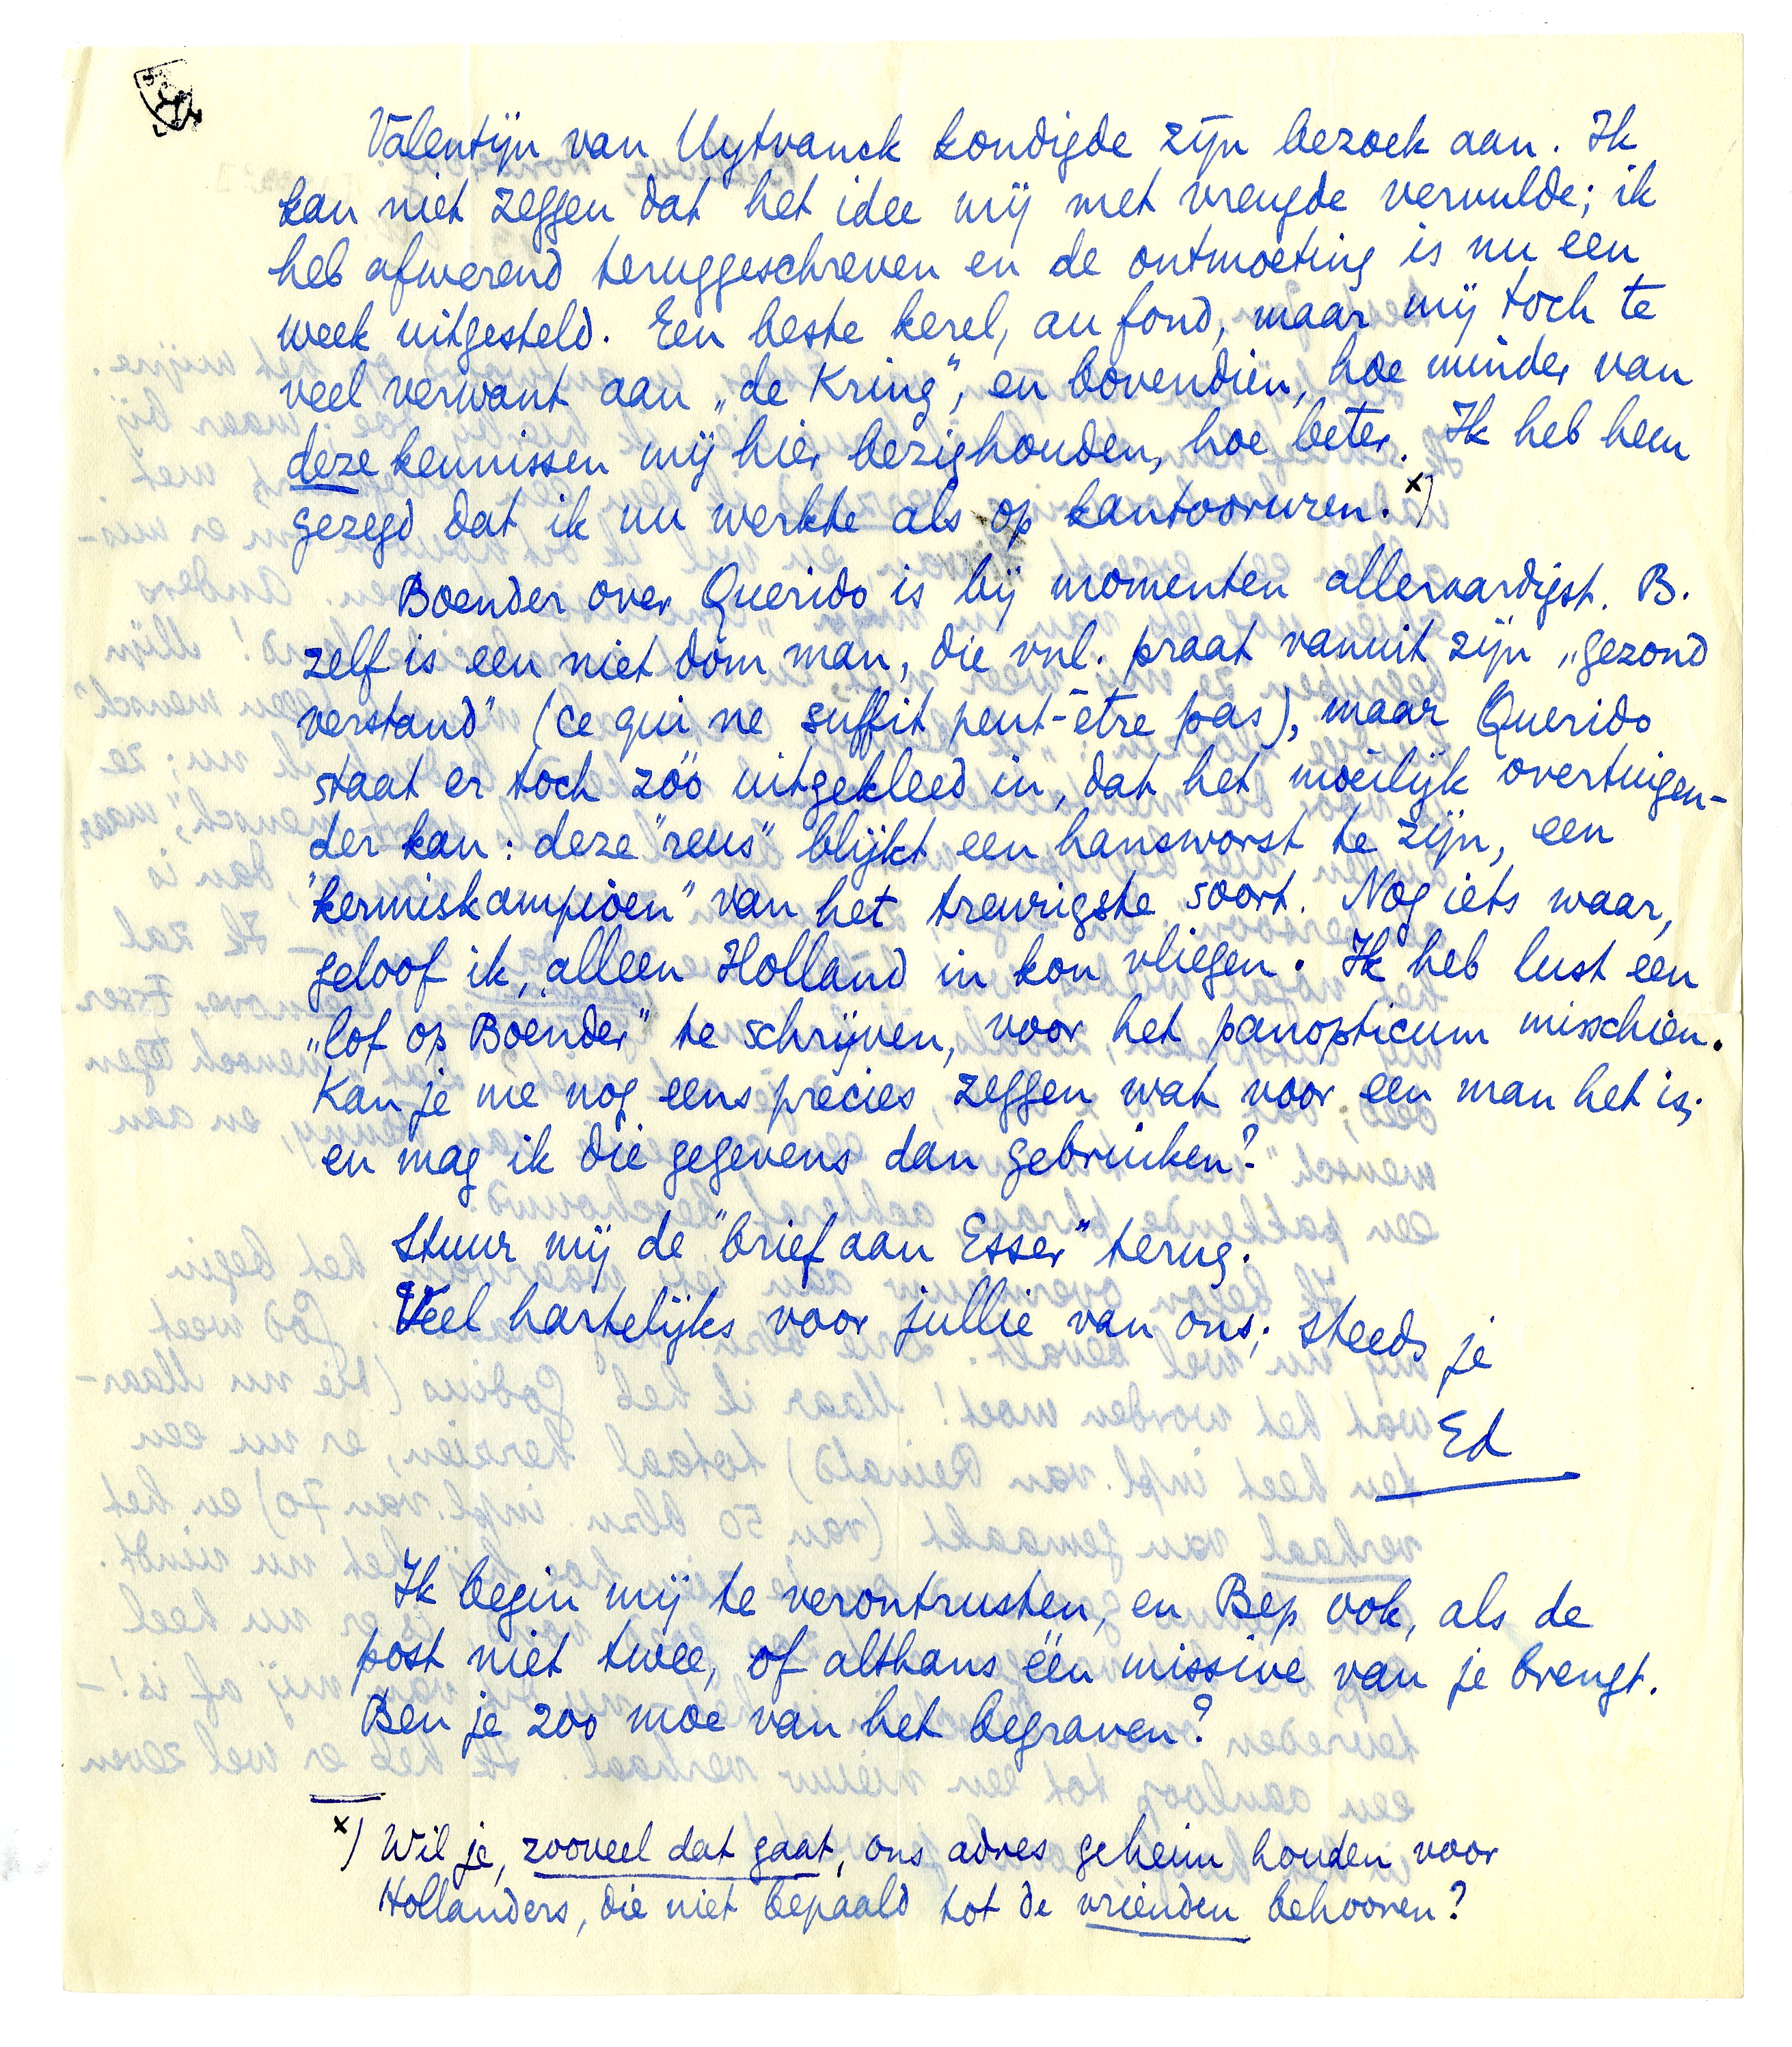 Valentijn van Uytvanck kondigde zijn bezoek aan. Ik
kan niet zeggen dat het idee mij met vreugde vervulde; ik
heb afwerend teruggeschreven en de ontmoeting is nu een
week uitgesteld. Een beste kerel, au fond, maar mij toch te
veel verwant aan „de Kring”, en bovendien, hoe minder van
deze kennissen mij hier bezighouden, hoe beter. Ik heb hem
gezegd dat ik nu werkte als op kantooruren. x)
Boender over Querido is bij momenten alleraardigst. B.
zelf is een niet dom man, die vnl. praat vanuit zijn „gezond
verstand” (ce qui ne suffit peut-être pas), maar Querido
staat er toch zóó uitgekleed in, dat het moeilijk overtuigen-
der kan: deze "reus" blijkt een hansworst te zijn, een
"kermiskampioen" van het treurigste soort. Nog iets waar,
geloof ik, alleen Holland in kon vliegen. Ik heb lust een
„lof op Boender" te schrijven, voor het panopticum misschien.
Kan je me nog eens precies zeggen wat voor een man het is;
en mag ik die gegevens dan gebruiken?
Stuur mij de "brief aan Esser" terug.
Veel hartelijks voor jullie van ons; steeds je
Ed
Ik begin mij te verontrusten, en Bep ook, als de
post niet twee, of althans één missive van je brengt.
Ben je zoo moe van het begraven?
x) Wil je, zooveel dat gaat, ons adres geheim houden voor
Hollanders, die niet bepaald tot de vrienden behooren?